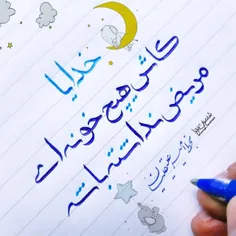 خدایا
کاش هیچ خونه ای
مریض نداشته باشه